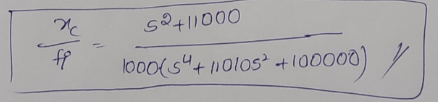 x_c / f_p = s²+11000 / 1000(s⁴+11010s²+100000) //